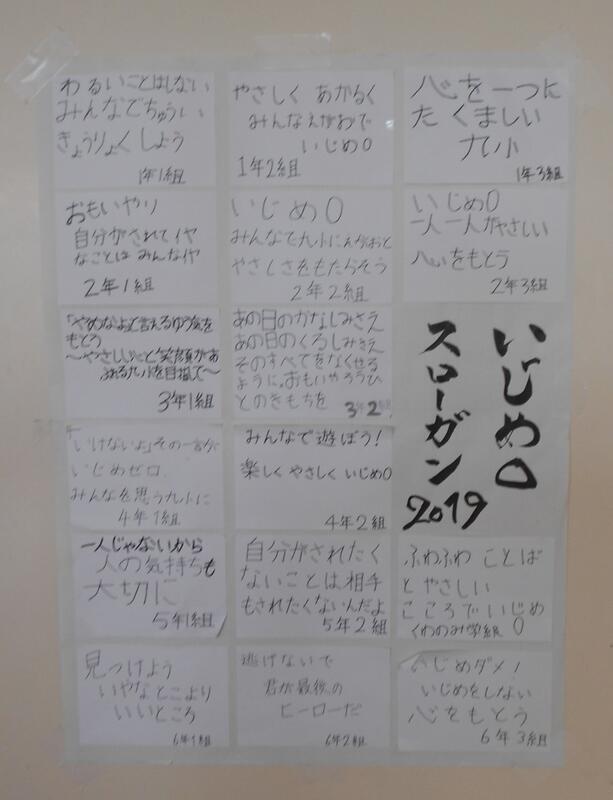 わるいことはしない
みんなでちゅうい
きょうりょくしよう
1年1組
やさしく あかるく
みんなえがおで
いじめ0
1年2組
心を一つに
たくましい
九小
1年3組
おもいやり
自分がされてイヤ
なことは みんなイヤ
2年1組
いじめ0
みんなで九小にえがおと
やさしさをもたらそう
2年2組
いじめ0
一人一人がやさしい
心をもとう
2年3組
「やめなよ」と言えるゆう気を
もとう
〜やさしい心と笑顔があ
ふれる九小を目指して〜
3年1組
あの日のかなしみさえ
あの日のくるしみさえ
そのすべてをなくせる
ように。おもいやろうひ
とのきもちを
3年2組
いじめ0
スローガン
2019
「いけないよ」その一言が
いじめゼロ
みんなを思う九小に
4年1組
みんなで遊ぼう!
楽しく やさしく いじめ0
4年2組
一人じゃないから
人の気持ちも
大切に
5年1組
自分がされたく
ないことは相手
もされたくないんだよ
5年2組
ふわふわ ことば
とやさしい
こころでいじめ
くわのみ学級 0
見つけよう
いやなとこより
いいところ
6年1組
逃げないで
君が最後の
ヒーローだ
6年2組
いじめダメ!
いじめをしない
心をもとう
6年3組